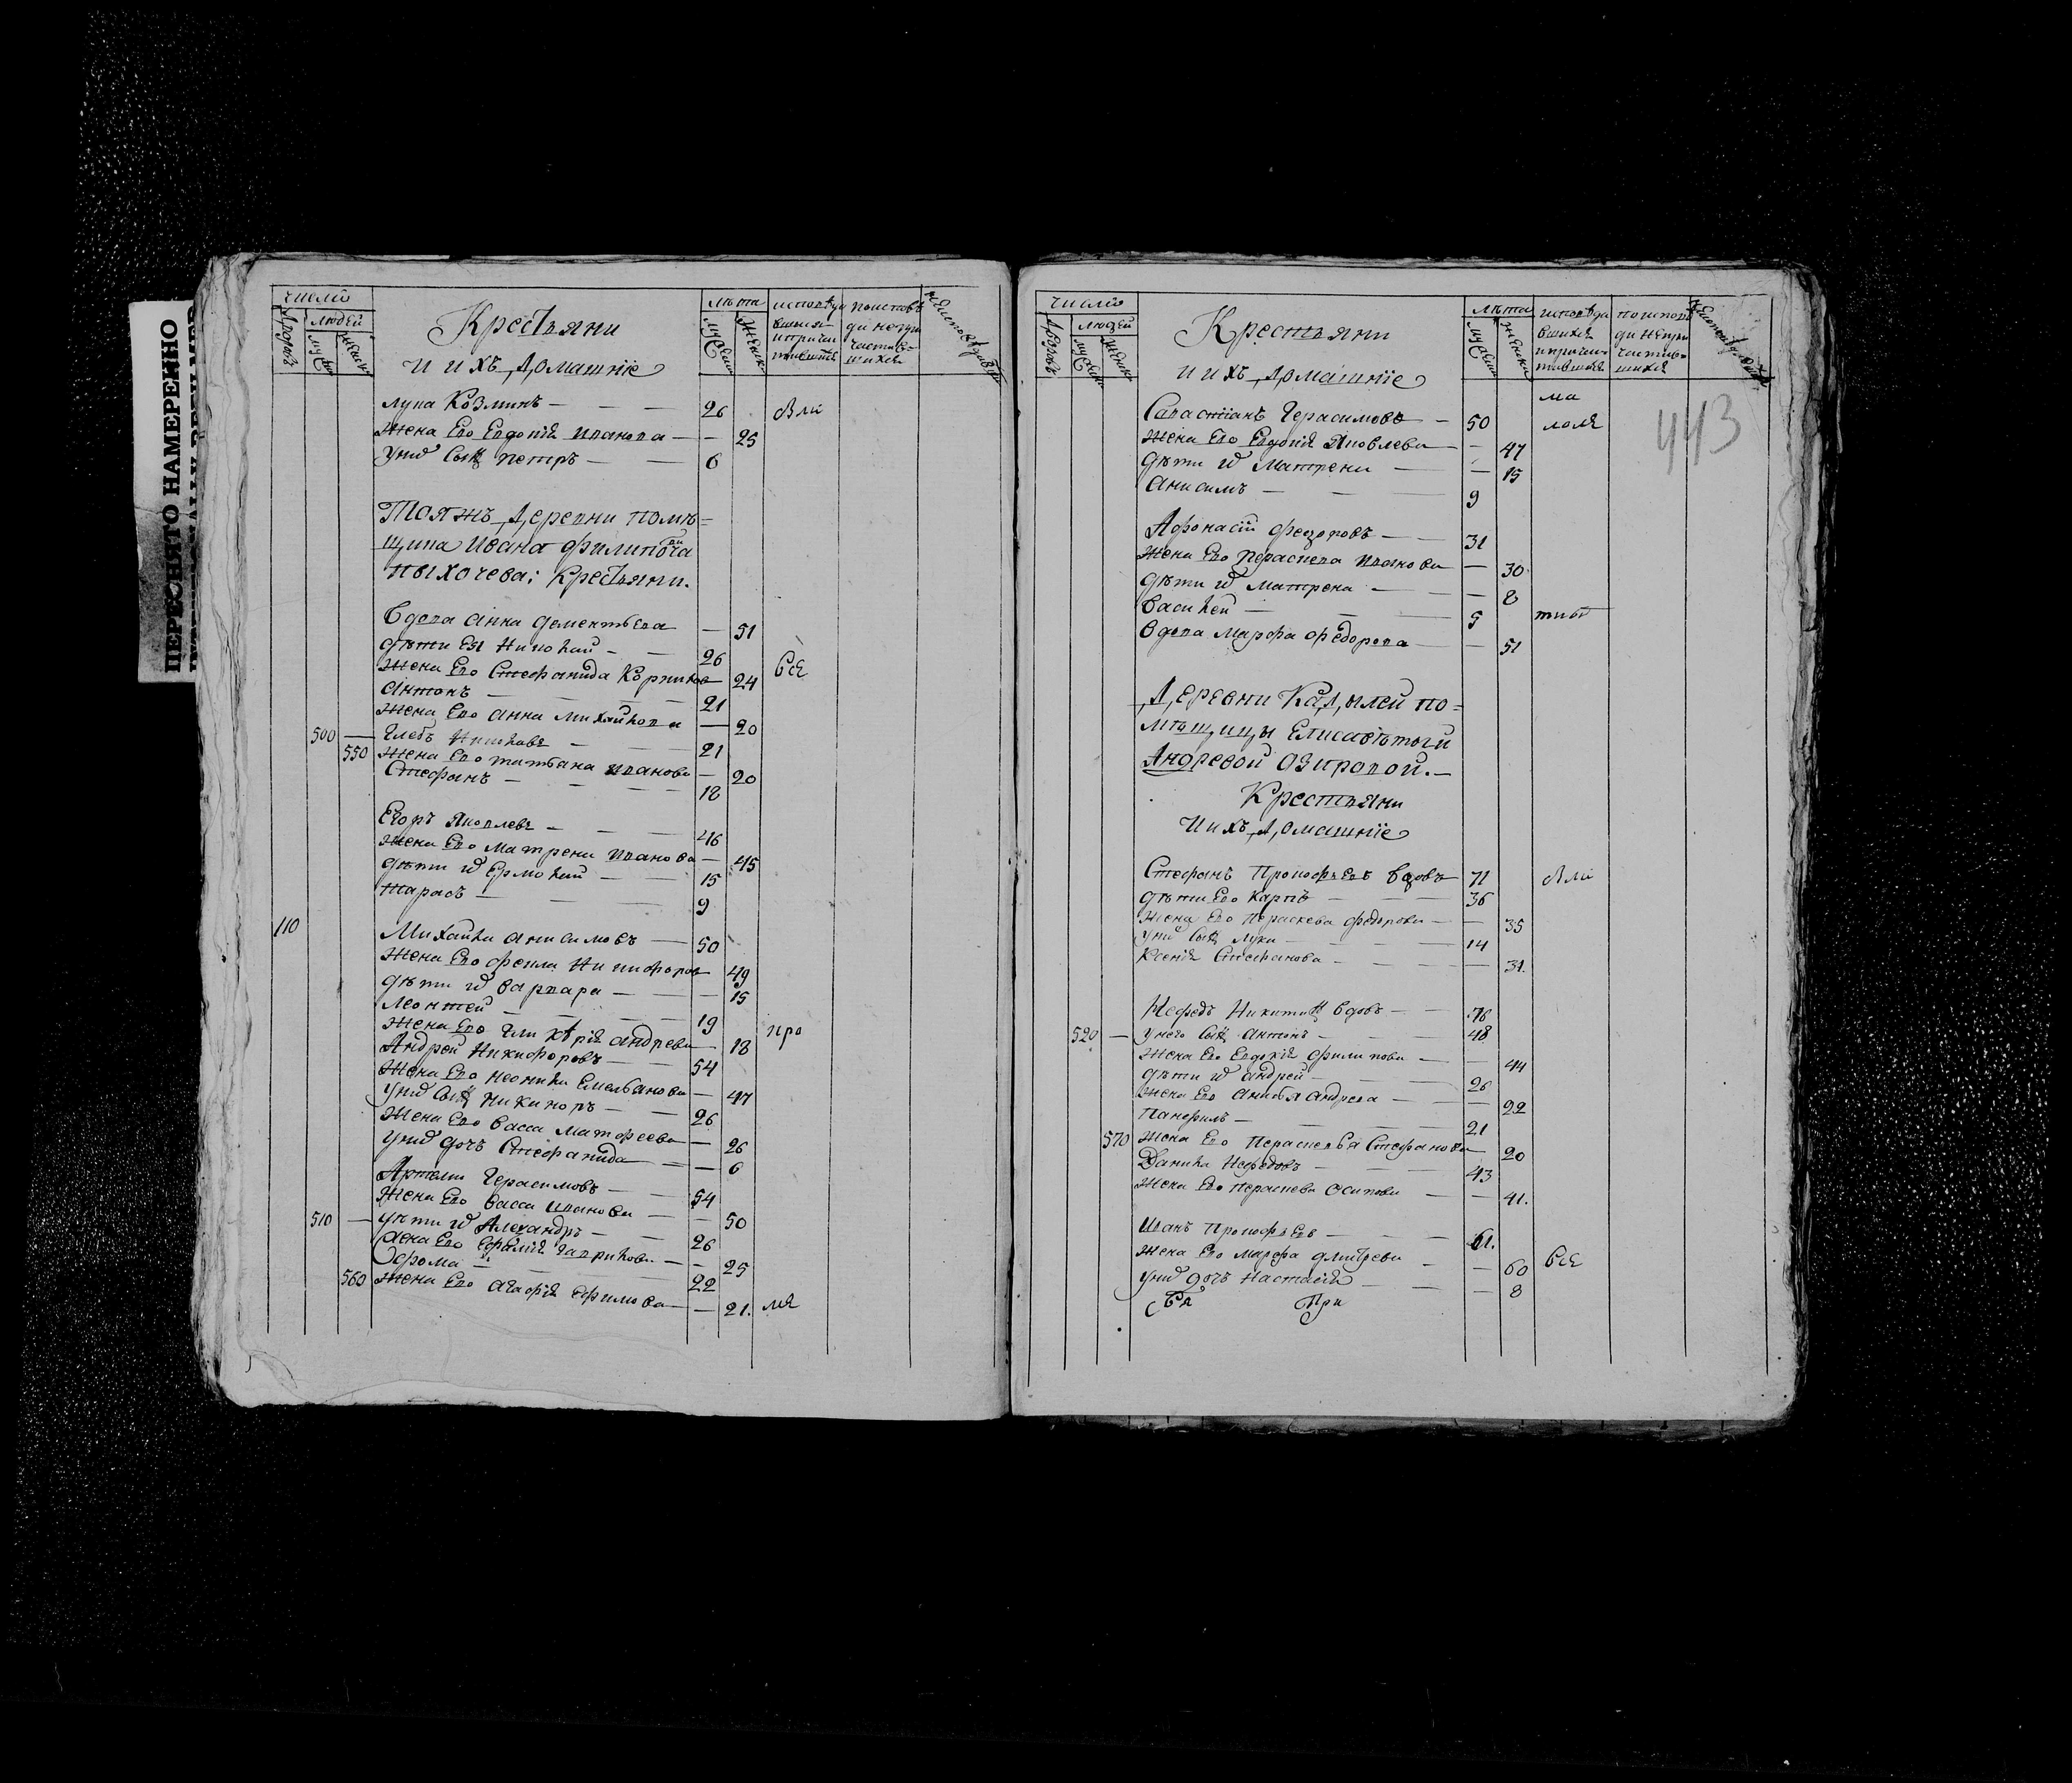 ПЕРЕСНЯТО НАМЕРЕННО
числѡ
Дворовъ
людей
муж
женск
Крестьяни
и ихъ домашнїе
лѣта
муж
женск
исповѣда
вшихся
и причас
тившихся
по исповѣ
ди не при
частив-
шихся
Лука Козминъ — — — 26 Яли
жена Ево Евдокїя Иванова — — 25
у них Сынъ Петръ — — 6
Тояжъ деревни помѣ=
щика Ивана Филипо
Пыхочева: Крестьяни.
Вдова Анна Дементьева — 51
дѣти Ея Николай — — 26
Жена Ево Стефанида Карпиков 24 Все
Антонъ — — — 21
Жена Ево Анна Михайлова — 20
500 — Глебъ Николавъ — — 21
550 Жена Ево Татьяна Иванова — 20
Стефанъ — — — 18
Егоръ Яковлевъ — — — 46
Жена Ево Матрена Иванова — 45
дѣти их Ермолай — — 15
Тарасъ — — — 9
110 Михайла Анисимовъ — 50
Жена Ево Фекла Никифоров 49
дѣти их Варвара — — 15
Леонтей — — — 19
Жена Ево Андреева — 18 про
Андрей Никифоровъ — 54
Жена Ево Неонила Емельанова — 47
у них Сынъ Никиноръ — — 26
Жена Ево Васса Матфеева — 26
у них дочь Стефанида — — 6
Артемш Герасимовъ — — 54
Жена Ево Васса Иванова — — 50
510 — дѣти их Алеѯандръ — — 26
Жена Ево Ефимия Гаврилова — — 25
Фома — — 22
560 Жена Ево Агафїя Ефимова — — 21. мя
числѡ
Дворовъ
людей
муж
женск
Крестьяни
и ихъ домашнїе
лѣта
муж
женски
исповѣда
вшихся
и причас-
тившихся
по испов
ди не при
частив-
шихся
443
ма
Савастїанъ Герасимовъ — 50 лоля
Жена Ево Евдокїя Яковлева — 47
дѣти их Матрена — — 15
Анисимъ — — — 9
Афонасїй Феодоровъ — — 31
Жена Ево Пераскева Иванова — 30
дѣти их Матрена — — — 8
Василей — — — 5 тиѣ
Вдова Марфа Федорова — — 51
Деревни Кадылей по=
мѣщицы Елисавѣты
Андревой Озировой. —
Крестьяни
И ихъ домашнїе
Стефанъ Прокофьевъ вдовъ 71 Яли
дѣти Ево Карпъ — — — 36
жена Ево Пераскева Федорова — — 35
у них Сынъ Лука — — — 14
Ксенїя Стефанова — — — 31.
Нефедъ Никитинъ вдовъ — — 78
520 — у нево Сынъ Антонъ — — — 48
Жена Ево Евдокїя Филипова — — 44
дѣти их Андрей — — — 26
Жена Ево Андрева — — — 22
Панфилъ — — — 21
570 Жена Ево Пераскева Стефанова — 20
Данила Нефедовъ — — 43
Жена Ево Пераскева Осипова — — 41.
Иванъ Прокофьевъ — — — 61.
Жена Ево Марфа Дмитрева — — 60 Все
у них дочь Настасїя — — — 8
При